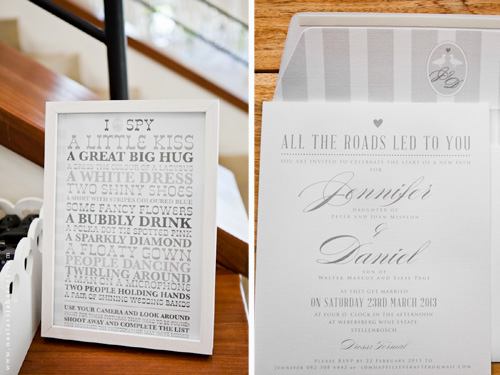 I SPY
A LITTLE KISS
A GREAT BIG HUG
A WHITE DRESS
TWO SHINY SHOES
A SHIRT WITH STRIPES COLOURED BLUE
SOME FANCY FLOWERS
A BUBBLY DRINK
A POLKA DOT TIE SPOTTED PINK
A SPARKLY DIAMOND
A FLOATY GOWN
PEOPLE DANCING
TWIRLING AROUND
A MAN ON A MICROPHONE
TWO PEOPLE HOLDING HANDS
A PAIR OF SHINING WEDDING BANDS
USE YOUR CAMERA AND LOOK AROUND
SHOOT AWAY AND COMPLETE THE LIST
J&D
ALL THE ROADS LED TO YOU
YOU ARE INVITED TO CELEBRATE THE START OF A NEW ONE FOR
Jennifer
DAUGHTER OF
PETER AND JOAN
&
Daniel
SON OF
WALTER MARCOT AND PAGE
TO BE MARRIED
ON SATURDAY 23RD MARCH 2013
AT O'CLOCK IN THE AFTERNOON
AT WEBERSBURG WINE ESTATE
STELLENBOSCH
Dress: Formal
PLEASE RSVP BY 22 FEBRUARY 2013
JENNIFER 082